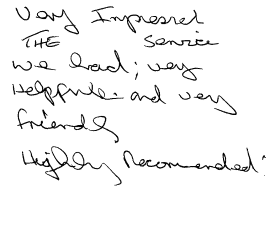 Very Impressed
THE Service
we had; very
Helpfull and very
friendly
Highly Recommended.